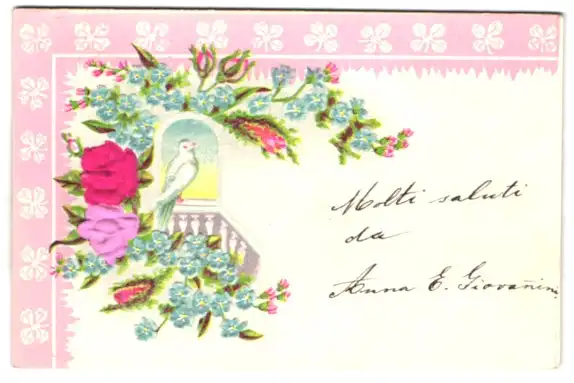 Molti saluti
da
Anna E. Giovannini